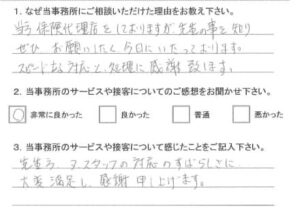 1. なぜ当事務所にご相談いただけた理由をお教え下さい。
当方保険代理店をしておりますが先生の事を知り
ぜひ お願いしたく今日にいたっております。
スピードある対応と、処理に感謝致します。
2. 当事務所のサービスや接客についてのご感想をお聞かせ下さい。
非常に良かった 良かった 普通 悪かった
3. 当事務所のサービスや接客について感じたことをご記入下さい。
先生方、スタッフの対応のすばらしさに
大変満足し、感謝申し上げます。